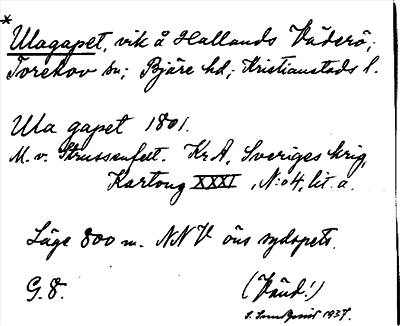 * Ulagapet, vik å Hallands Väderö;
Torekov sn; Bjäre hd; Kristianstads l.
Ula gapet 1801.
M. v. Strussenfelt. Kr.A, Sveriges krig,
Kartong XXXI, N:o 4, lit. a.
Läge 800 m. NNV öns sydspets.
G. 8.
(Vänd!)
S. Lundquist 1937.